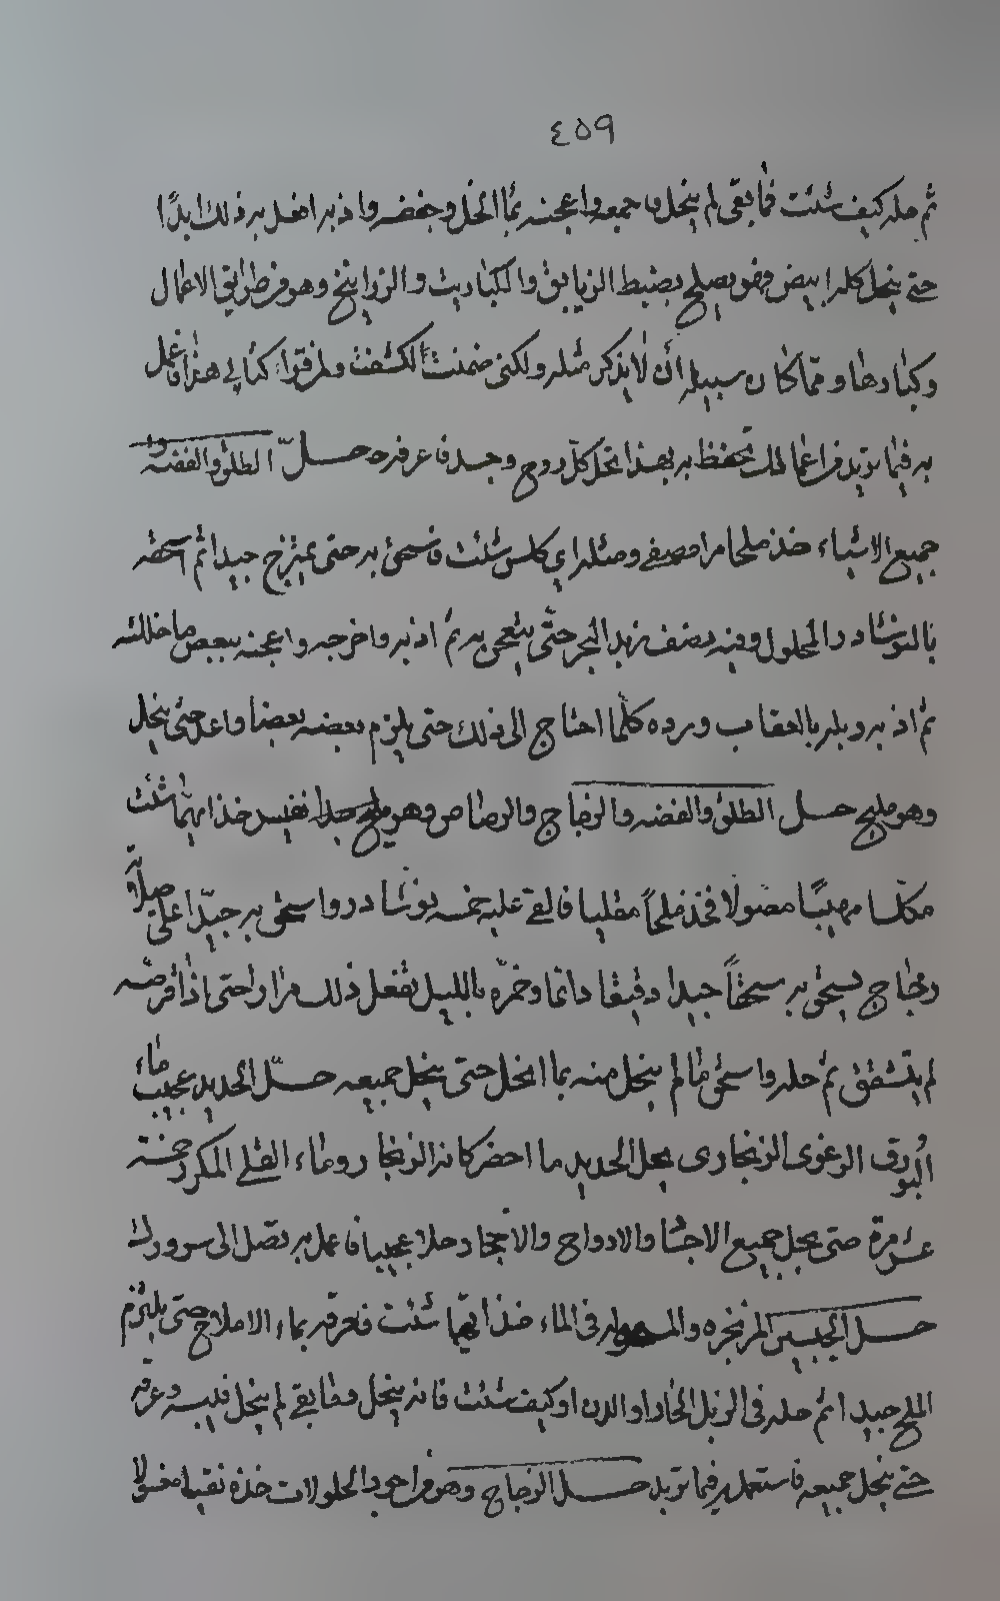 ٤٥٩
ثم حله كيف شئت فما بقى لم ينحل فاجمعه واعجنه بما انحل وجففه واذبه افعل به ذلك ابدًا
حتى ينحل كله ابيض فهو يصلح بضبط الزيابق والكباريت والزرانيخ وهو من طرايق الاعمال
وكبارها ومما كان سبيله أن لا يذكر مثله ولكنى ضمنت الكشف ولمن قراء كتابى هذا فاعمل
به فيما تريد من اعمالك تحفظ به بهذا تحل كل روح وجسد فاعرفه حل الطلق والفضة و
جميع الاشياء خذ ملحا مرا مصفى ومثله اى كلس شئت فاسحق به حتى يمتزج جيدا ثم اسحقه
بالنوشادر المحلول وفيه نصف زبد البحر حتى ينعجن به ثم اذبه واخرجه واعجنه ببعض ما حللته
ثم اذبه وبله بالعقاب ورده كلما احتاج الى ذلك حتى يلزم بعضه بعضا واعد حتى ينحل
وهو مليح حل الطلق والفضه والزجاج والرصاص وهو مليح جدا نفيس خذ ايهما شئت
مكلسا مهيبًا مغسولا فخذ ملحاً مقليا فالق عليه خمسه نوشادر واسحق به جيّدا على صلاية
زجاج يسحق به سحقاً جيدا دقيقا دائما وخمره بالليل تفعل ذلك مرارا حتى اذا قرصته
لم يتشقق ثم حله واسحق ما لم ينحل منه بما انحل حتى ينحل جميعه حلّ الحديد عجيب ماء
البُورق الرغوى الزنجارى يحل الحديد ما احضر كانه الزنجار وماء القلى المكرر خمسة
عشر مرة حتى يحل جميع الاجساد والارواح والاحجار حلا عجيبا فاعمل به تصل الى سرورك
حل الجبسين المزنجره والمـ فى الماء خذ ايهما شئت فغرقه بماء الاملاح حتى يلتزم
الملح جيدا ثم حله فى الزبل الحار او الدن او كيف شئت فانه ينحل وما بقى لم ينحل فيبسه وغرقه
حتى ينحل جميعه فاستعمله فيما تريد حل الزجاج وهو من اجود المحلولات خذه نقيا مغسولا